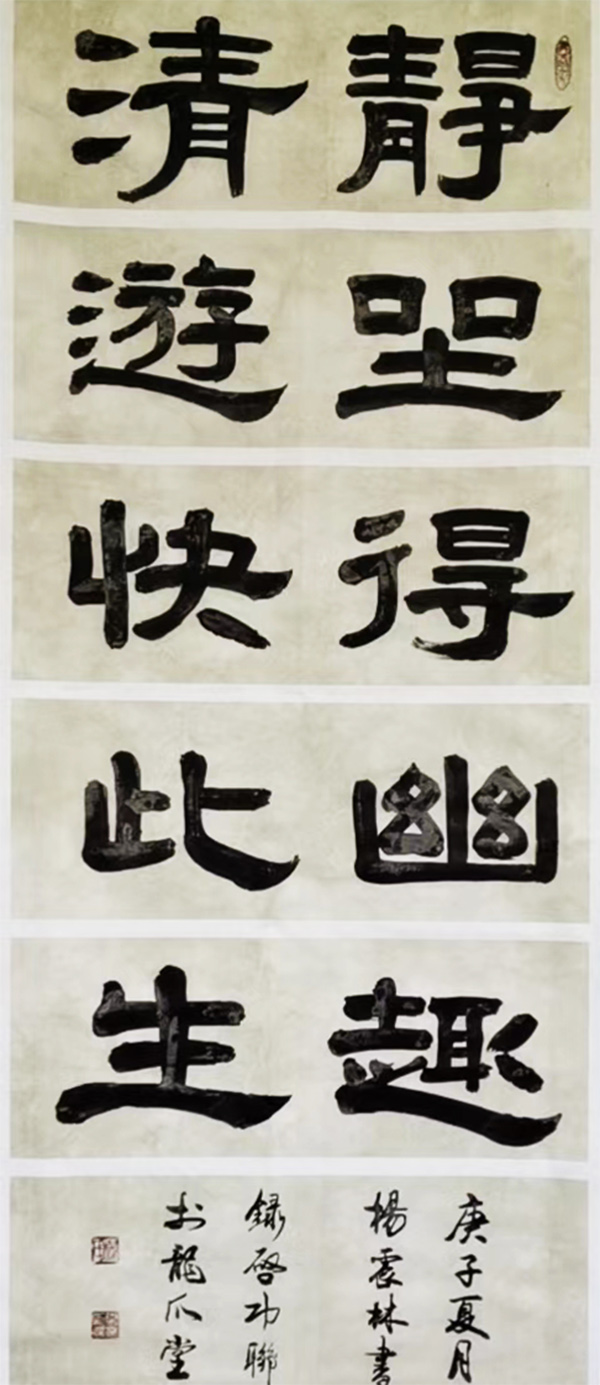 靜坐得幽趣
清遊快此生
庚子夏月
楊震林書
錄啓功聯
於龍爪堂